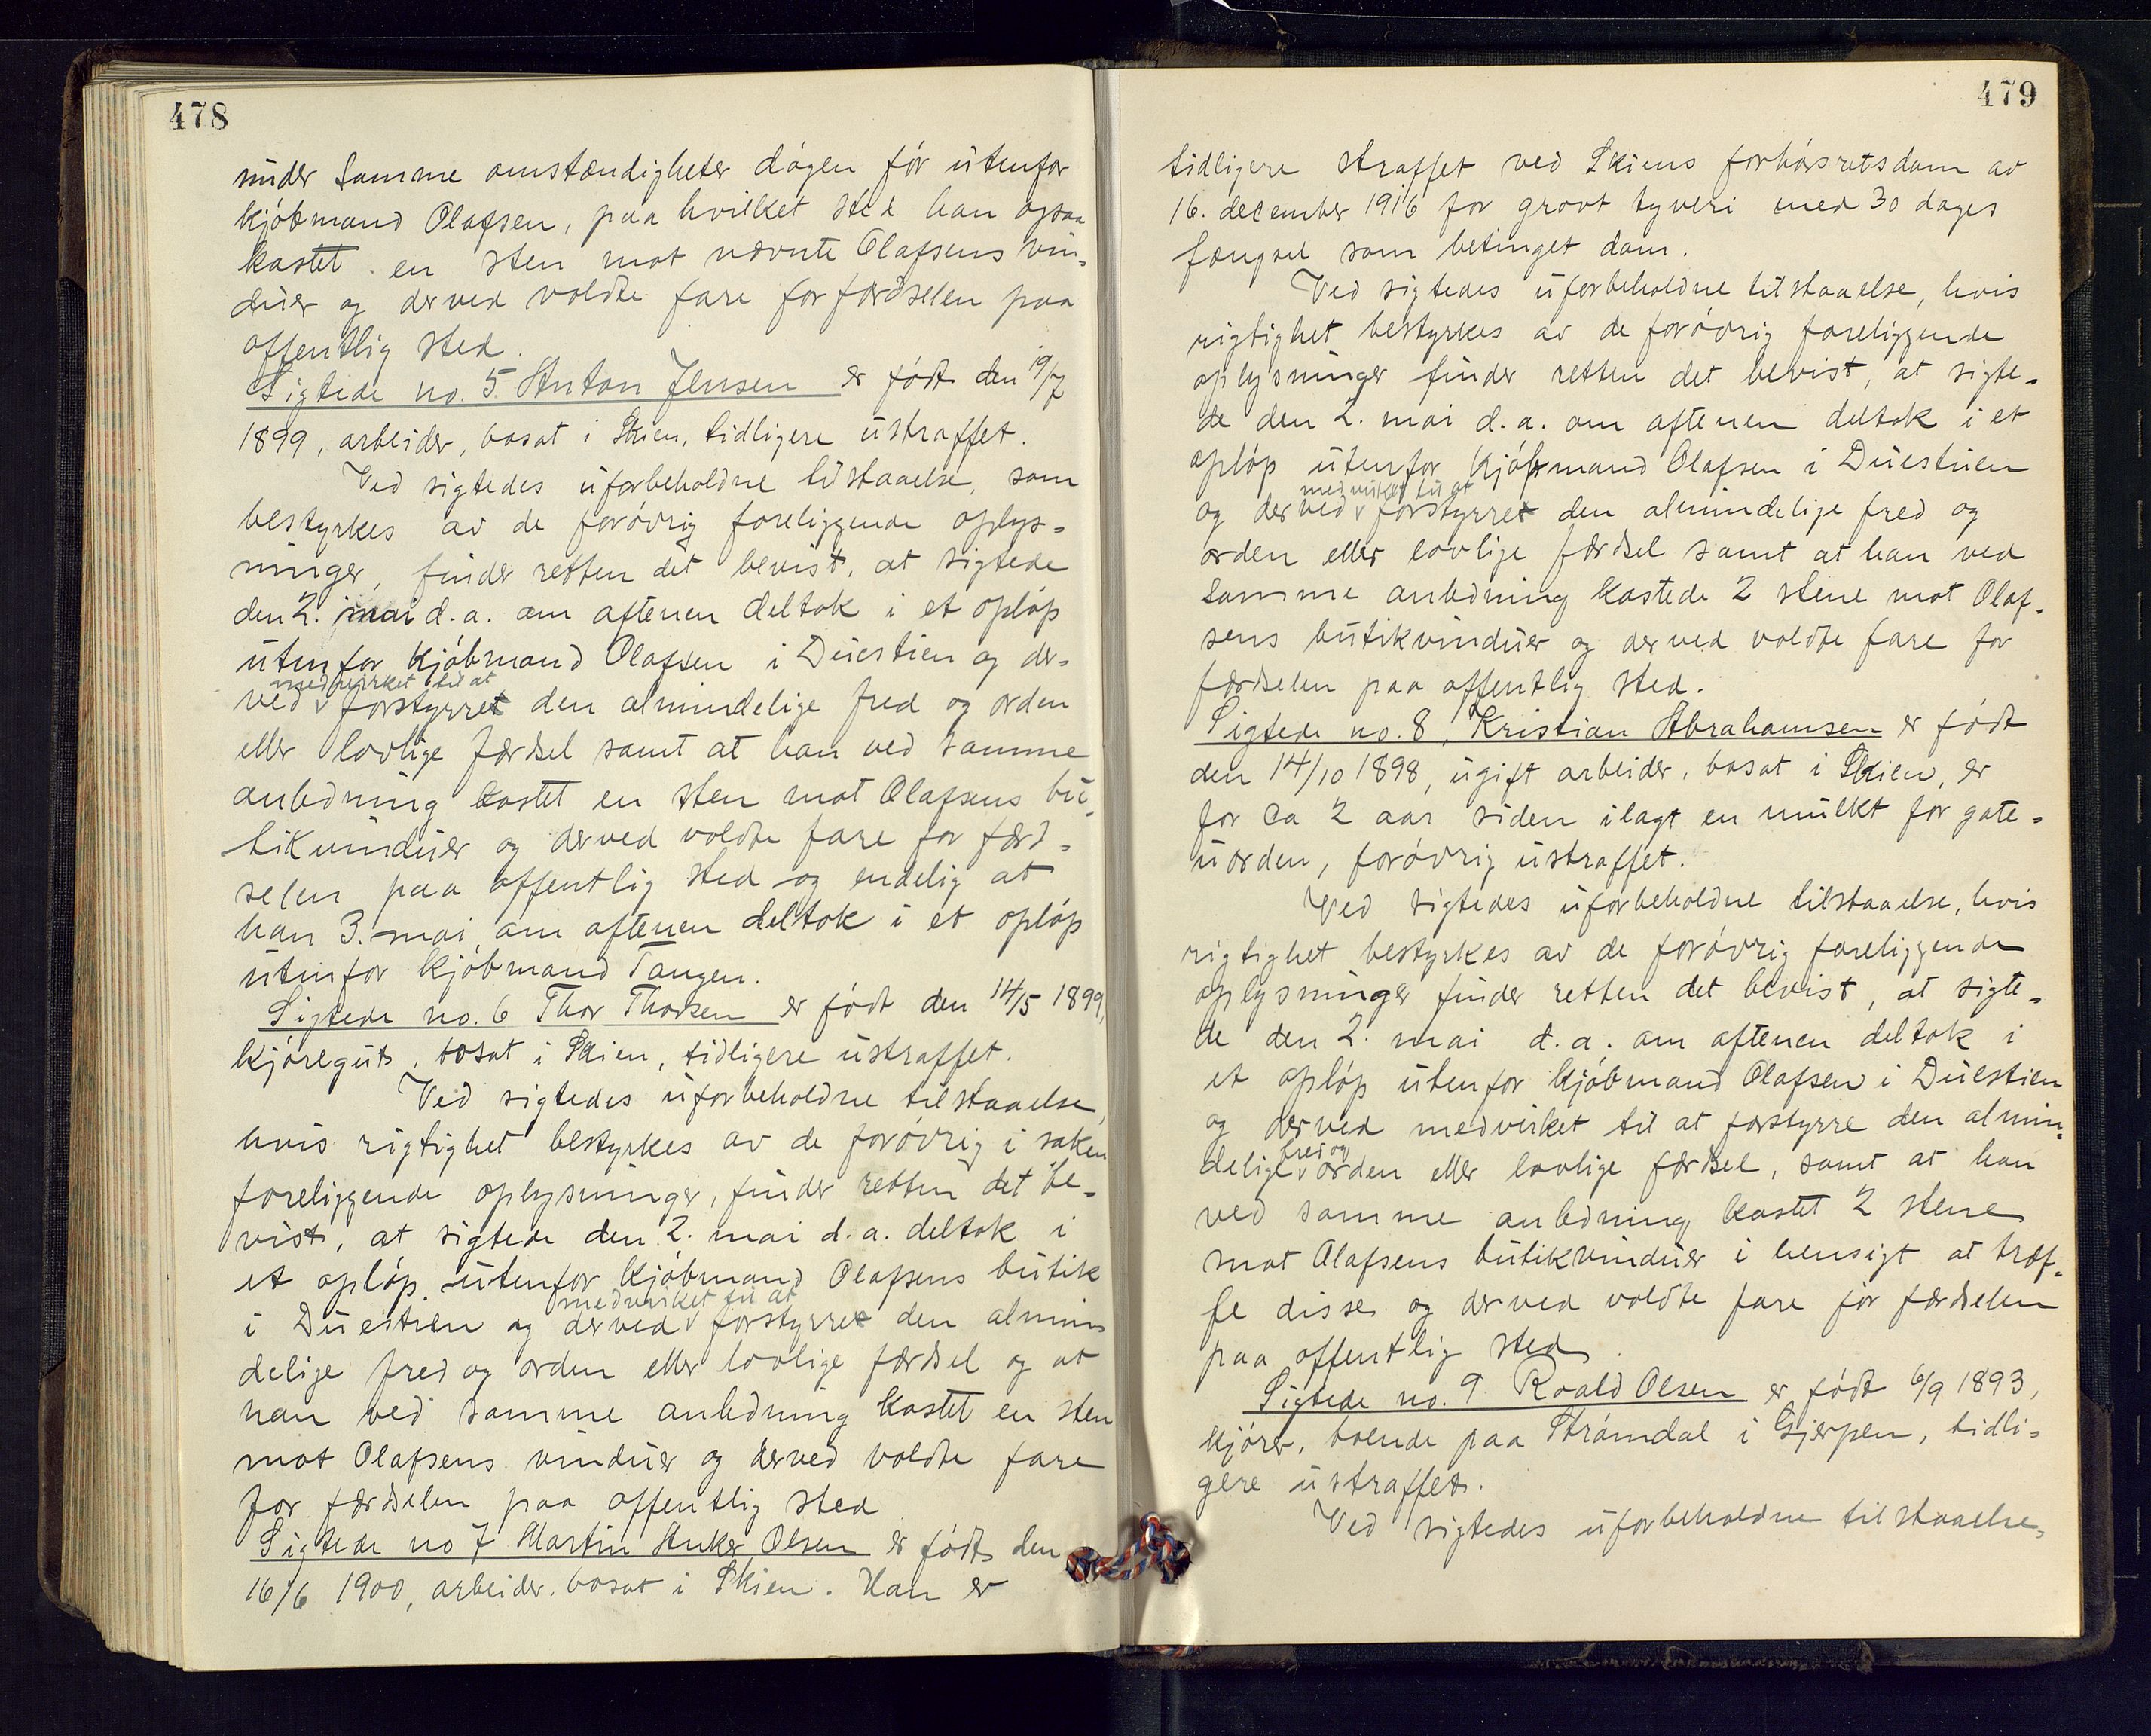 478
under samme omstændigheter dagen før utenfor
kjøbmand Olafsen, paa hvilket sted han ogsaa
kastet en sten mot nævnte Olafsens vin-
duer og derved voldte fare for færdselen paa
offentlig sted.
Sigtede no. 5. Anton Jensen er født den 19/7
1899, arbeider, bosat i Skien, tidligere ustraffet.
Ved sigtedes uforbeholdne tilstaaelse, som
bestyrkes av de forøvrig foreliggende oplys-
ninger, finder retten det bevist, at sigtede
den 2. mai d.a. om aftenen deltok i et opløp
utenfor kjøbmand Olafsen i Duestien og der-
medvirket til at
ved v forstyrret den almindelige fred og orden
eller lovlige færdsel samt at han ved samme
anledning kastet en sten mot Olafsens bu-
tikvinduer og derved voldte fare for færd-
selen paa offentlig sted og endelig at
han 3. mai om aftenen deltok i et opløp
utenfor kjøbmand Tangen.
Sigtede no. 6 Thor Thorsen er født den 14/5 1899,
kjøregut, bosat i Skien, tidligere ustraffet.
Ved sigtedes uforbeholdne tilstaaelse,
hvis rigtighet bestyrkes av de forøvrig i saken
foreliggende oplysninger, finder retten det be-
vist, at sigtede den 2. mai d.a. deltok i
et opløp utenfor kjøbmand Olafsens butik
medvirket til at
i Duestien og derved v forstyrret den almin-
delige fred og orden eller lovlige færdsel og at
han ved samme anledning kastet en sten
mot Olafsens vinduer og derved voldte fare
for færdselen paa offentlig sted
Sigtede no 7 Martin Anker Olsen er født den
16/6 1900, arbeider, bosat i Skien. Han er
479
tidligere straffet ved Skiens forhørsretsdom av
16. december 1916 for grovt tyveri med 30 dages
fængsel som betinget dom.
Ved sigtedes uforbeholdne tilstaaelse, hvis
rigtighet bestyrkes av de forøvrig foreliggende
oplysninger finder retten det bevist, at sigte-
de den 2. mai d.a. om aftenen deltok i et
opløp utenfor kjøbmand Olafsen i Duestien
medvirket til at
og derved v forstyrret den almindelige fred og
orden eller lovlige færdsel samt at han ved
samme anledning kastede 2 stene mot Olaf-
sens butikvinduer og derved voldte fare for
færdselen paa offentlig sted.
Sigtede no. 8, Kristian Abrahamsen er født
den 14/10 1898, ugift arbeider, bosat i Skien, er
for ca 2 aar siden ilagt en mulkt for gate-
uorden, forøvrig ustraffet.
Ved sigtedes uforbeholdne tilstaaelse, hvis
rigtighet bestyrkes av de forøvrig foreliggende
oplysninger finder retten det bevist, at sigte-
de den 2. mai d.a. om aftenen deltok i
et opløp utenfor kjøbmand Olafsen i Duestien
og derved medvirket til at forstyrre den almin-
fred og
delige v orden eller lovlige færdsel, samt at han
ved samme anledning kastet 2 stene
mot Olafsens butikvinduer i hensigt at træf-
fe disse og derved voldte fare for færdselen
paa offentlig sted.
Sigtede no. 9 Roald Olsen er født 6/9 1893,
kjører, boende paa Strømdal i Gjerpen, tidli-
gere ustraffet.
Ved sigtedes uforbeholdne tilstaaelse,